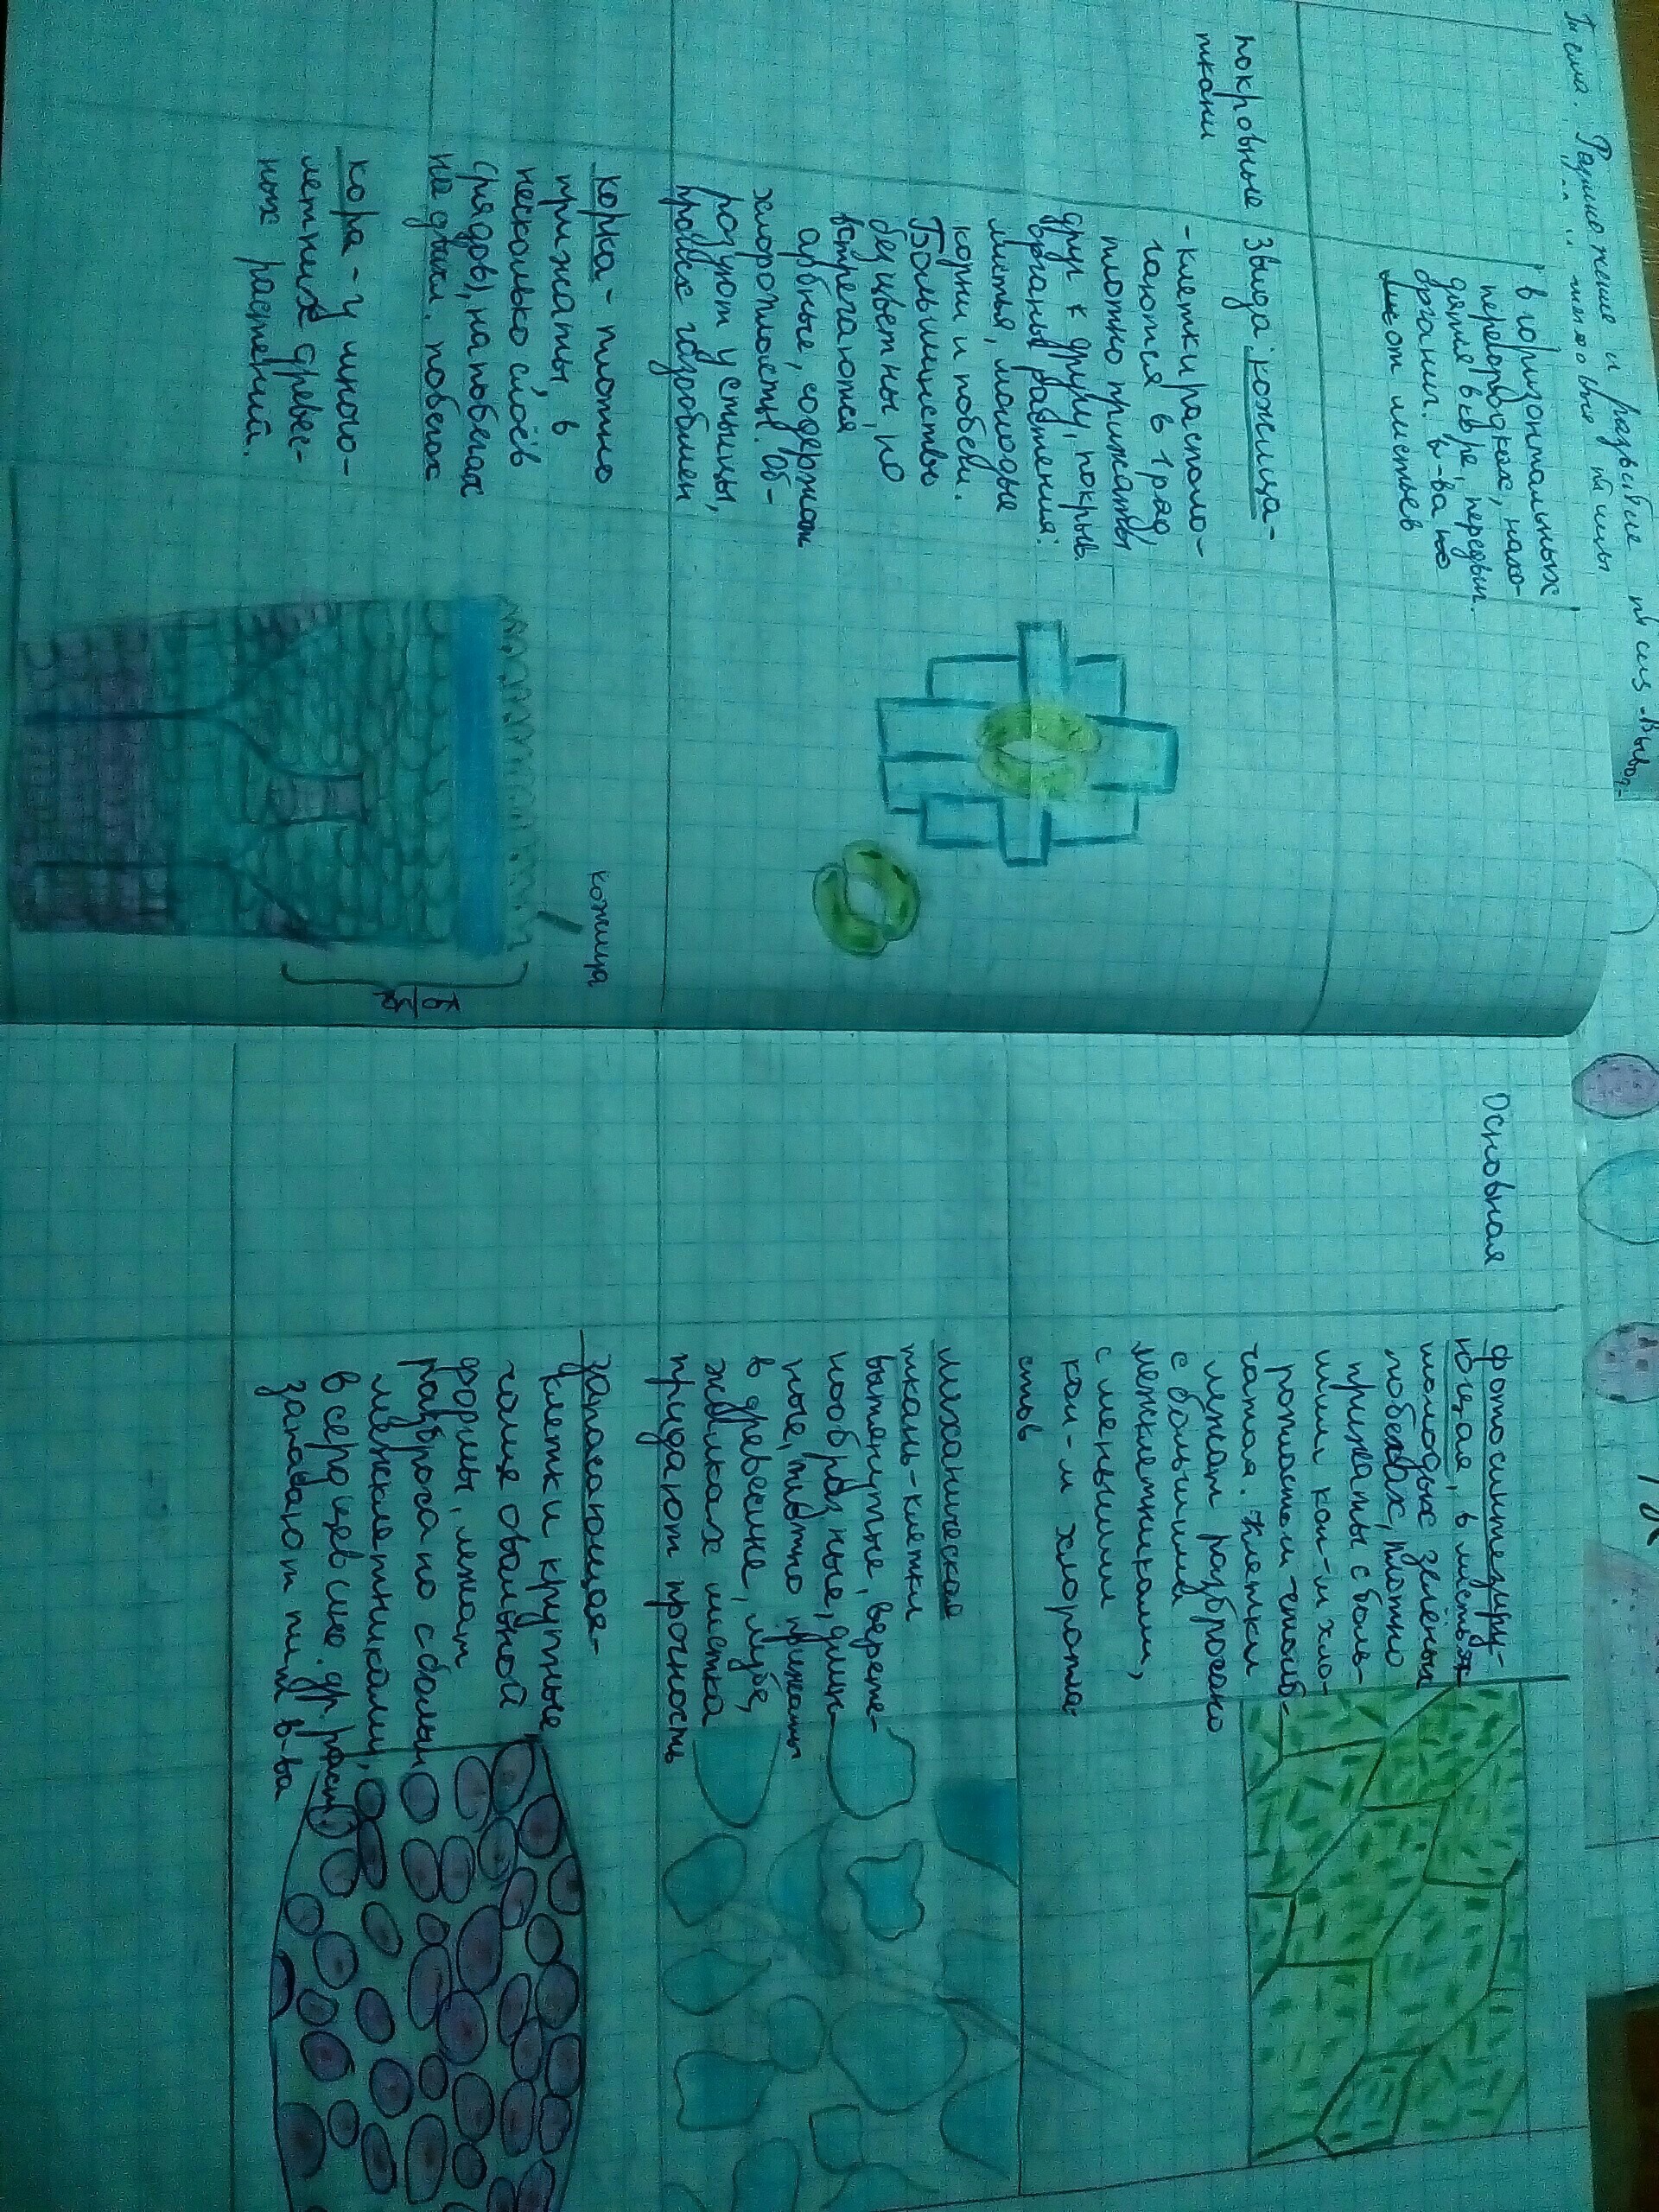 Тема: Размножение и развитие
в горизонтальных
перегородках, нахо-
дятся в коре, передвиг.
органич. в-ва
от листьев
покровные
ткани
3 вида: кожица-
-клетки распола-
гаются в 1 ряд,
плотно прижаты
друг к другу, покрыв.
органы растения:
листья, молодые
корни и побеги.
Большинство
бецветны, но
встречаются
арбные, содержат
хлоропласты. Об-
разуют устьицы,
провех газообмен
корка - плотно
прижаты, в
несколько слоёв
(рядов), на побегах
побегах
кора - у много-
летних древес-
ных растений.
кожица
Основная
фотосинтезиру-
ющая, в листьях
молодых зелёных
побегах, плотно
прижаты с боль-
шим кол-м хло-
ропластом - столб-
чатая. Клетки
лежат разбросано
с большими
межклетниками,
с меньшим
кол-м хлоропла-
стов
механическая
ткань-клетки
вытянутые, верете-
нообразные, длин-
ные, плотно прижаты
в древесине, лубе,
жилках листка
придают прочность
запасающая-
клетки крупные
чаще овальной
формы, лежат
разброса но с больш
межклетниками,
в сердцевине др. раст
запасают пит в-ва